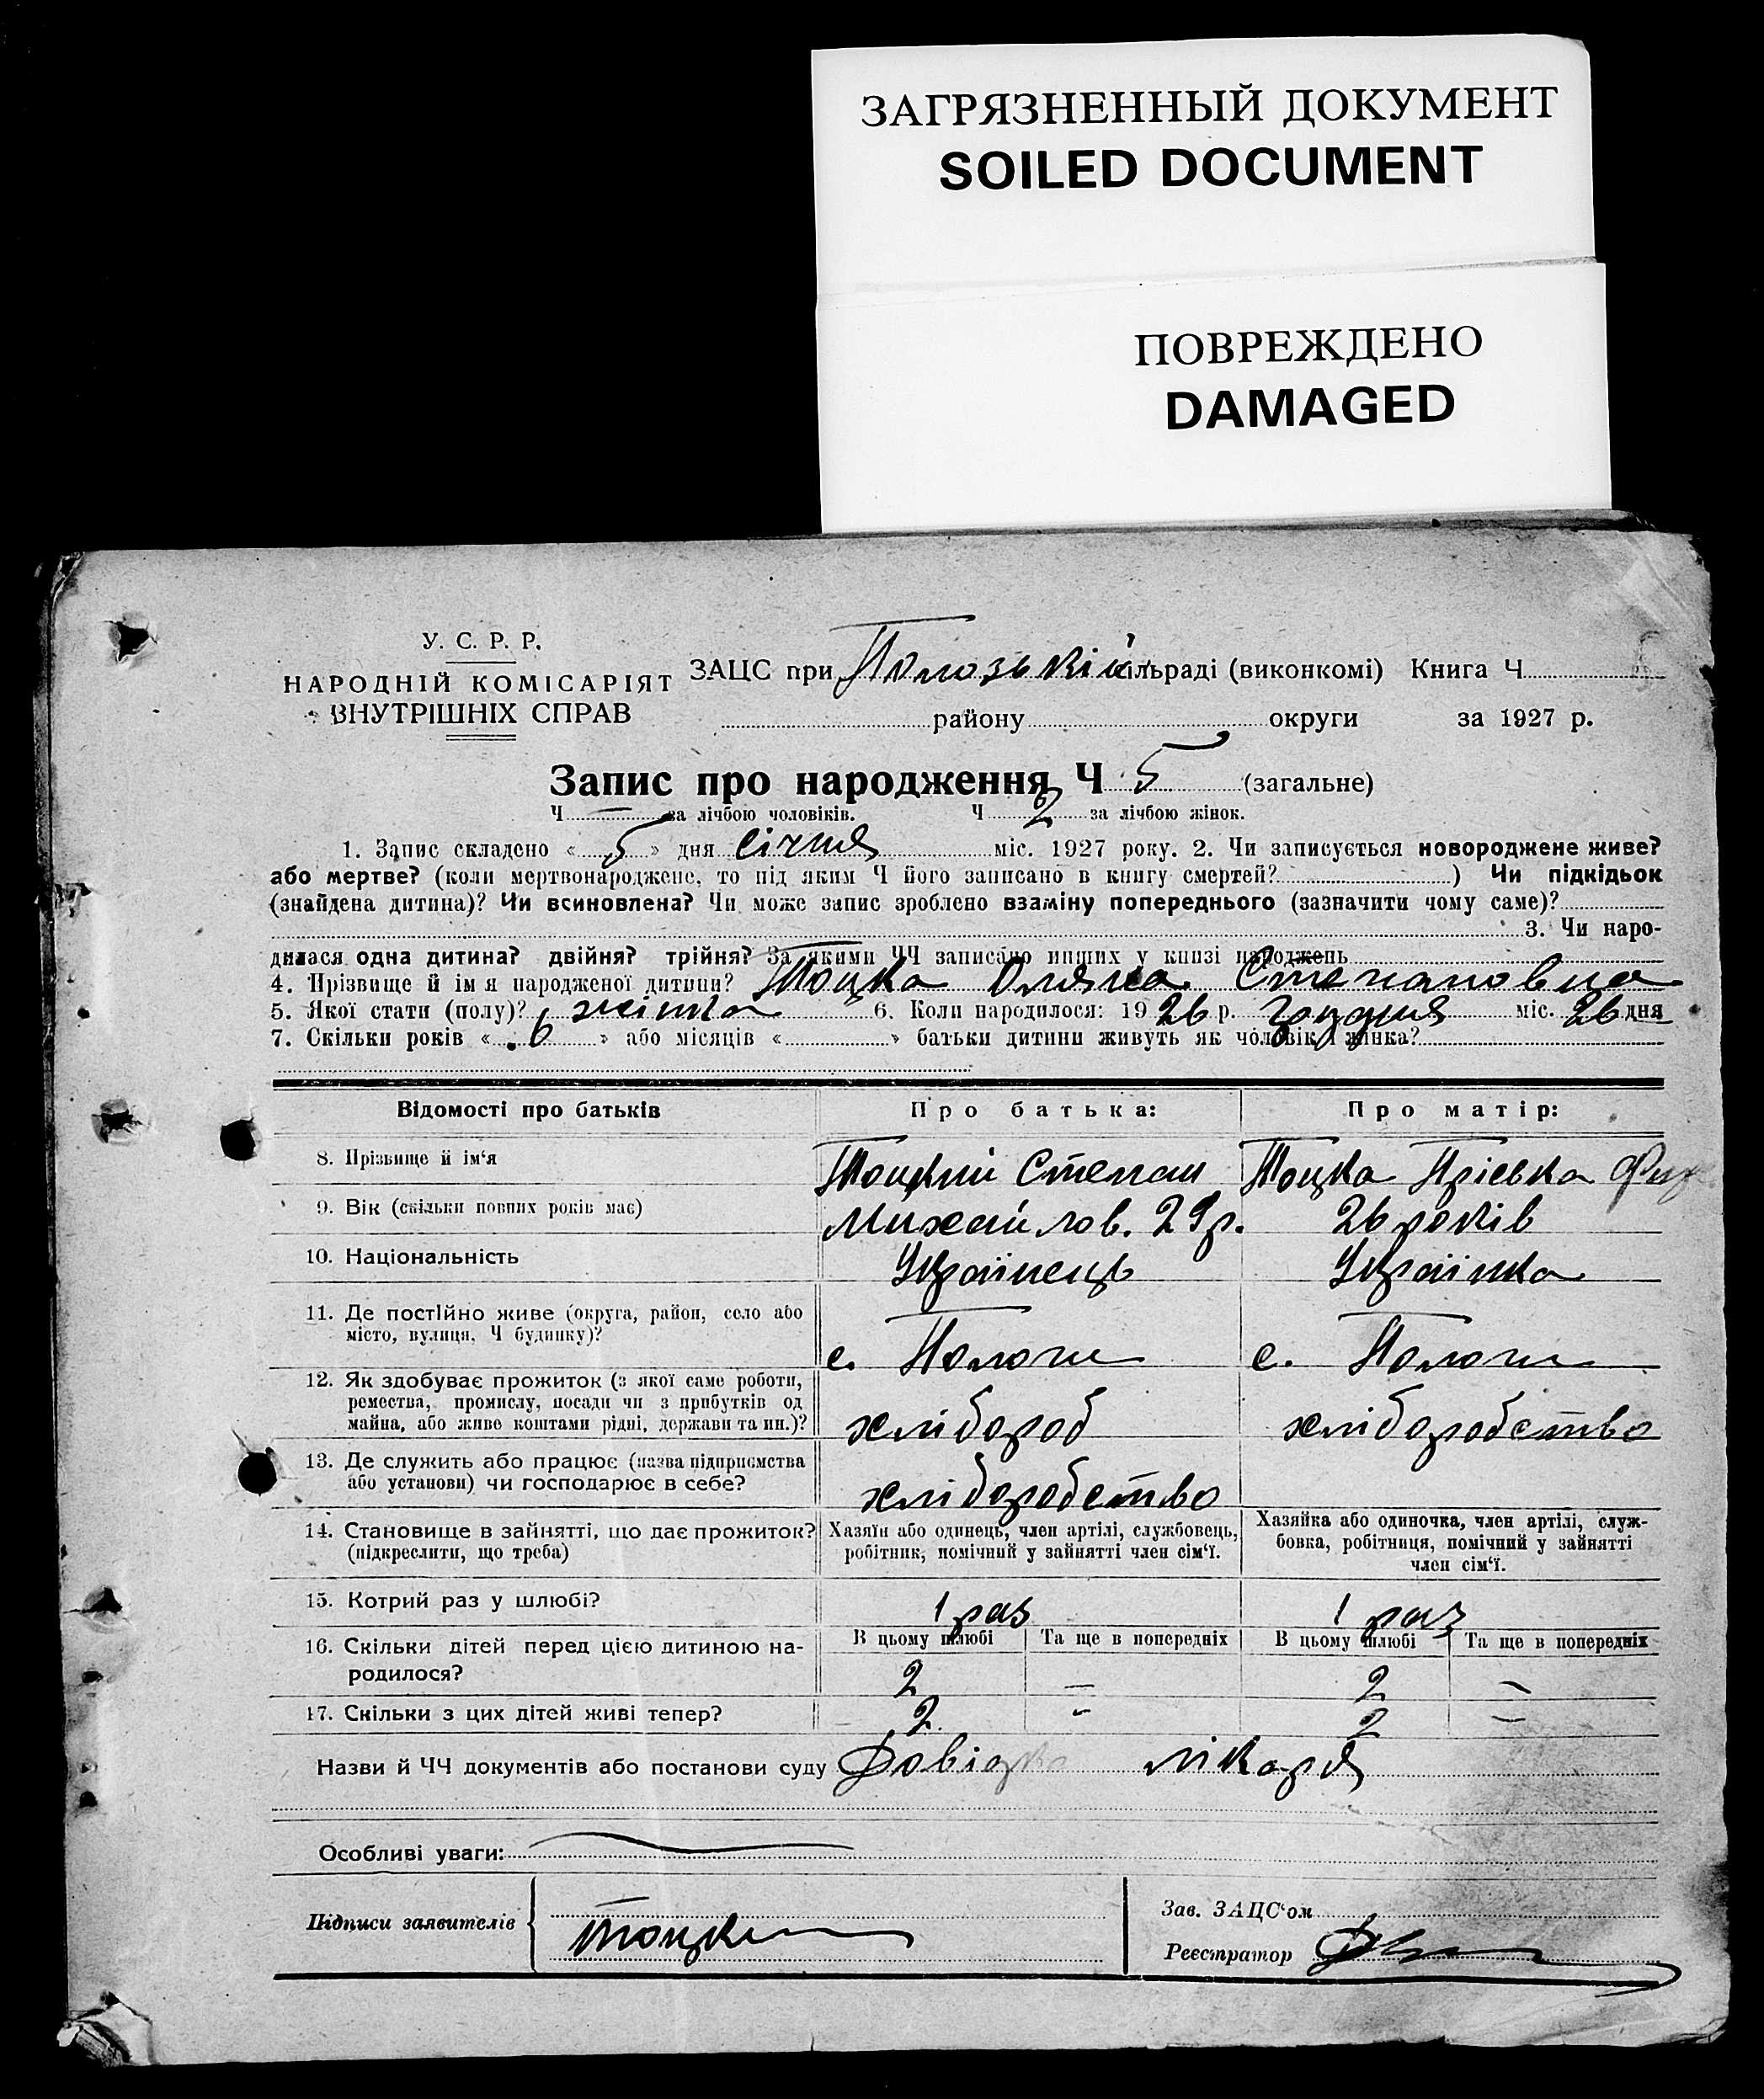 ЗАГРЯЗНЕННЫЙ ДОКУМЕНТ
SOILED DOCUMENT
ПОВРЕЖДЕНО
DAMAGED
У. С. Р. Р.
НАРОДНІЙ КОМІСАРІЯТ
ВНУТРІШНІХ СПРАВ
ЗАЦС при Полозькій сільраді (виконкомі) Книга Ч
району округи за 1927 р.
Запис про народження Ч 5 (загальне)
Ч — за лічбою чоловіків. Ч 2 за лічбою жінок.
1. Запис складено « 5 » дня січня міс. 1927 року. 2. Чи записується новороджене живе?
або мертве? (коли мертвонароджене, то під яким Ч його записано в книгу смертей? ) Чи підкідьок
(знайдена дитина)? Чи всиновлена? Чи може запис зроблено взаміну попереднього (зазначити чому саме)?
3. Чи наро-
дилася одна дитина? двійня? трійня? За якими ЧЧ записано инших у книзі народжень
4. Прізвище й ім я народженої дитини? Тоцка Оляна Степановна
5. Якої стати (полу)? жінка 6. Коли народилося: 19 26 р. грудня міс. 26 дня
7. Скільки років « 6 » або місяців « » батьки дитини живуть як чоловік і жінка?
Відомості про батьків Про батька: Про матір:
8. Прізвище й ім‘я Тоцкий Степан Тоцка
9. Вік (скільки повних років має) Михайлов. 29 р. 26 років
10. Національність Українець Українка
11. Де постійно живе (округа, район, село або
місто, вулиця, Ч будинку)?
с. Пологи с. Пологи
12. Як здобуває прожиток (з якої саме роботи,
ремества, промислу, посади чи з прибутків од
майна, або живе коштами рідні, держави та ин.)?
хлібороб хліборобство
13. Де служить або працює (назва підприємства
або установи) чи господарює в себе?
хліборобство
14. Становище в зайнятті, що дає прожиток?
(підкреслити, що треба)
Хазяїн або одинець, член артілі, службовець,
робітник, помічний у зайнятті член сім‘ї.
Хазяйка або одиночка, член артілі, служ-
бовка, робітниця, помічний у зайнятті
член сім‘ї.
15. Котрий раз у шлюбі? 1 раз 1 раз
16. Скільки дітей перед цією дитиною на-
родилося?
В цьому шлюбі Та ще в попередніх В цьому шлюбі Та ще в попередніх
2 – 2 –
17. Скільки з цих дітей живі тепер? 2 – 2 –
Назви й ЧЧ документів або постанови суду Довідка лікаря
Особливі уваги:
Підписи заявителів Тоцкий
Зав. ЗАЦС‘ом
Реєстратор